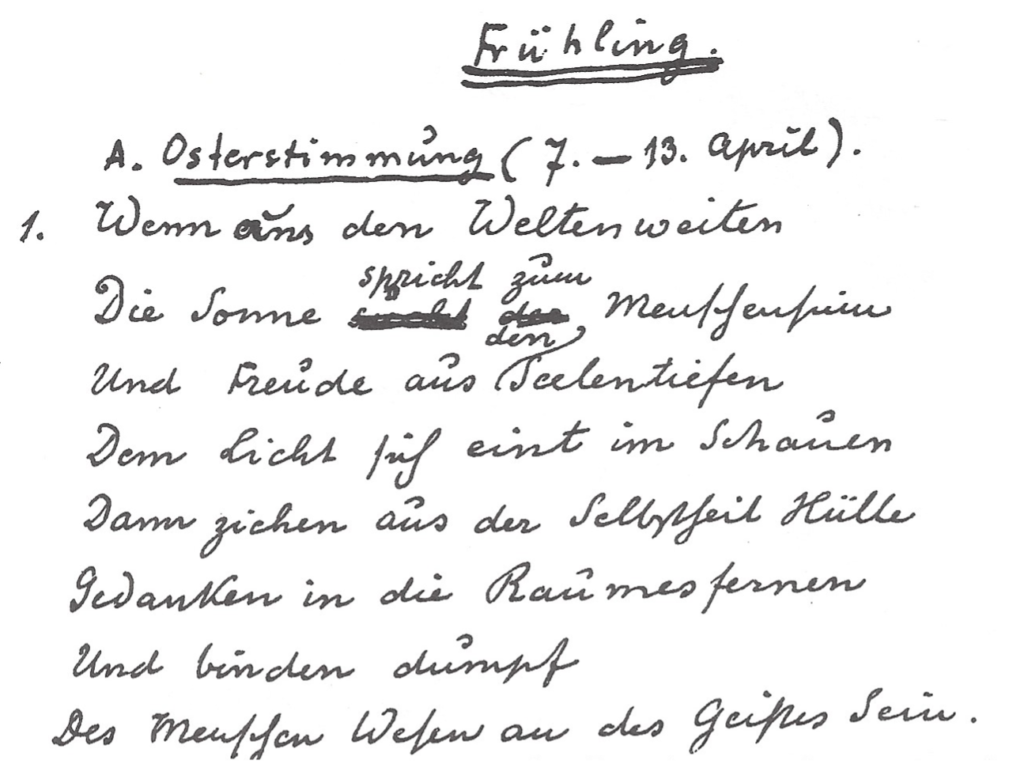 Frühling.
A. Osterstimmung (7. – 13. April).
1. Wenn aus den Weltenweiten
spricht zum
Die Sonne Menschensinn
den
Und Freude aus Seelentiefen
Dem Licht sich eint im Schauen
Dann ziehen aus der Selbstheit Hülle
Gedanken in die Raumesfernen
Und binden dumpf
Des Menschen Wesen an des Geistes Sein.